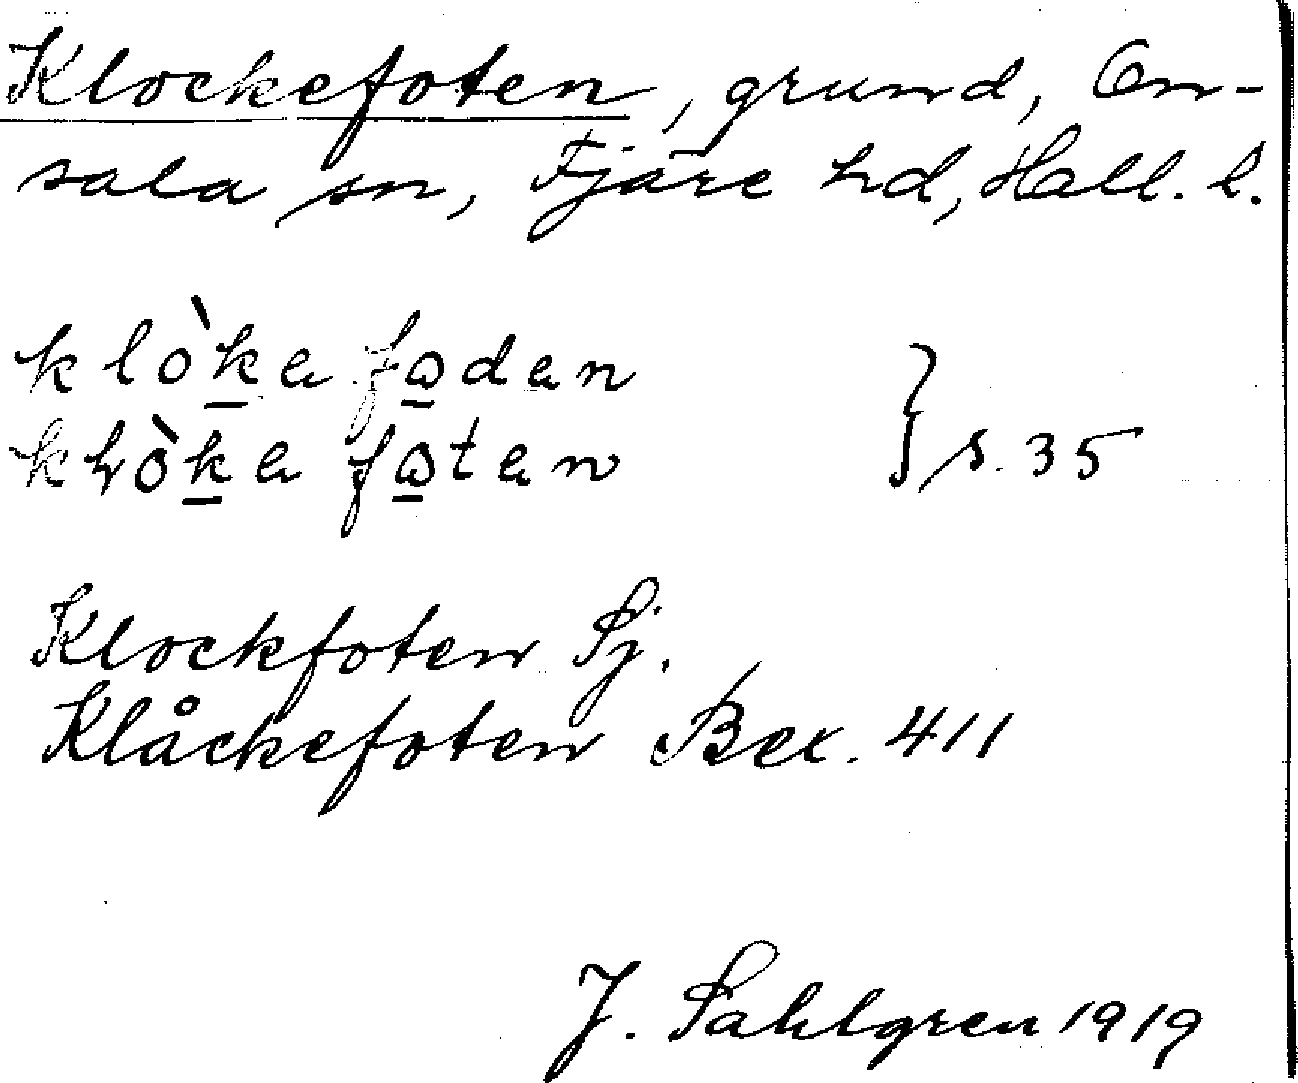 Klockefoten, grund, On-
sala sn, Fjäre hd, Hall. l.
klòka fodan
klòka fotan } s. 35
Klockfoten Sj.
Klåckefoten Bex. 411
J. Sahlgren 1919